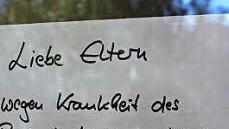 Liebe Eltern
wegen Krankheit des